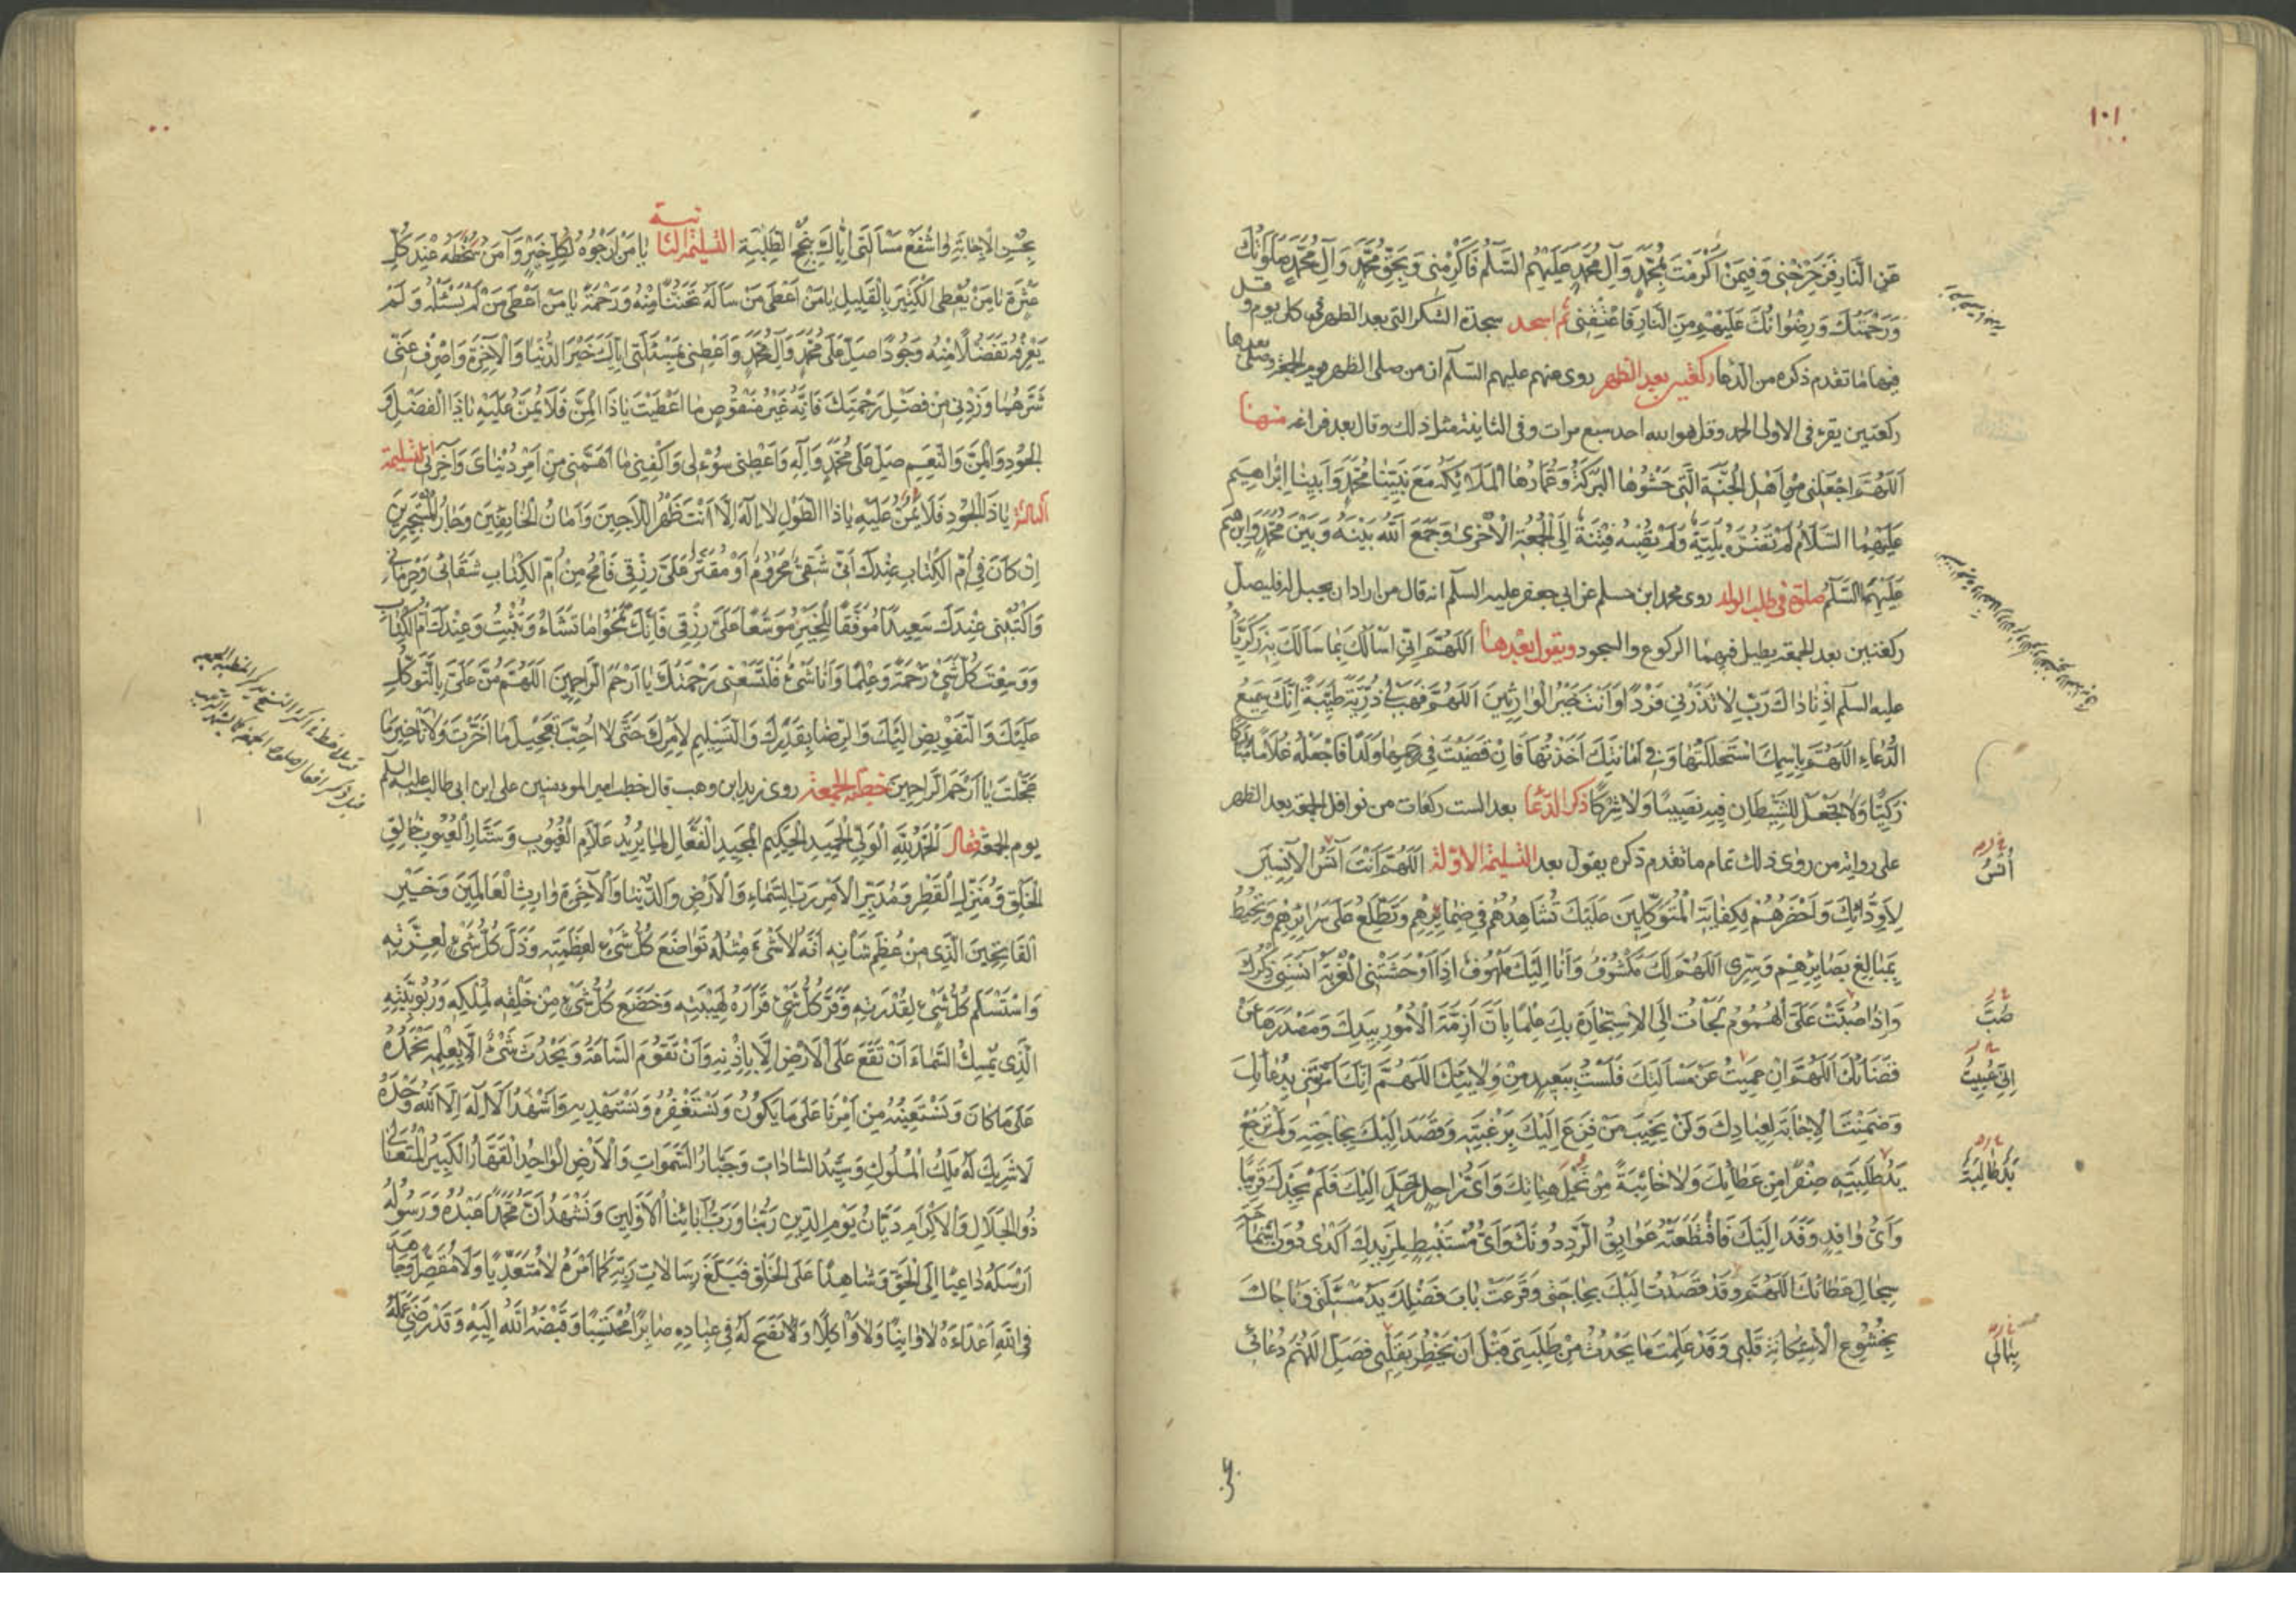 ١٠١
عَنِ النَّارِ فَزَحْزِحْنِي وَفِيمَنْ اَكْرَمْتَ بِمُحَمَّدٍ وَآلِ مُحَمَّدٍ عَلَيْهِمُ السَّلَمُ فَاَكْرِمْنِي وَبِحَقِّ مُحَمَّدٍ وَآلِ مُحَمَّدٍ صَلَوَاتُكَ
وَرَحْمَتُكَ وَرِضْوَانُكَ عَلَيْهِمْ مِنَ النَّارِ فَاَعْتِقْنِي ثم اسجد سجدة الشكر التي بعد الظهر في كل يوم وقل
فيها ما تقدم ذكره من الدعا ركعتين بعد الظهر روى عنهم عليهم السلم ان من صلى الظهر يوم الجمعة وصلى بعدها
ركعتين يقرء في الاولى الحمد وقل هو الله احد سبع مرات وفي الثانية مثل ذلك وقال بعد فراغه منها
اَللّٰهُمَّ اجْعَلْنِي مِنْ اَهْلِ الْجَنَّةِ الَّتِي حَشْوُهَا الْبَرَكَةُ وَعُمَّارُهَا الْمَلَائِكَةُ مَعَ نَبِيِّنَا مُحَمَّدٍ وَاَبِينَا اِبْرَاهِيمَ
عَلَيْهِمَا السَّلَامُ لَمْ تَضُرَّهُ بَلِيَّةٌ وَلَمْ تُصِبْهُ فِتْنَةٌ اِلَى الْجُمُعَةِ الْاُخْرَى وَجَمَعَ اللّٰهُ بَيْنَهُ وَبَيْنَ مُحَمَّدٍ وَاِبْرٰهِيمَ
عَلَيْهِمَا السَّلَمُ صلوة في طلب الولد روى محمد ابن مسلم عن ابي جعفر عليه السلم انه قال من اراد ان يحبل له فليصل
ركعتين بعد الجمعة يطيل فيهما الركوع والسجود ويقول بعدها اَللّٰهُمَّ اِنِّي اَسْاَلُكَ بِمَا سَاَلَكَ بِهِ زَكَرِيَّا
عليه السلم اِذْ نَادَاكَ رَبِّ لَا تَذَرْنِي فَرْدًا وَاَنْتَ خَيْرُ الْوَارِثِينَ اَللّٰهُمَّ فَهَبْ لِي ذُرِّيَّةً طَيِّبَةً اِنَّكَ سَمِيعُ
الدُّعَاءِ اَللّٰهُمَّ بِاسْمِكَ اسْتَحْلَلْتُهَا وَفِي اَمَانَتِكَ اَخَذْتُهَا فَاِنْ قَضَيْتَ فِي رَحِمِهَا وَلَدًا فَاجْعَلْهُ غُلَامًا مُبَارَكًا
زَكِيًّا وَلَا تَجْعَلْ لِلشَّيْطَانِ فِيهِ نَصِيبًا وَلَا شِرْكًا ذكر الدعا بعد الست ركعات من نوافل الجمعة بعد الظهر
على رواية من روى ذلك تمام ما تقدم ذكره يقول بعد التسليمة الاولة اَللّٰهُمَّ اَنْتَ آنَسُ الْآنِسِينَ
لِاَوِدَّائِكَ وَاَحْضَرُهُمْ لِكِفَايَةِ الْمُتَوَكِّلِينَ عَلَيْكَ تُشَاهِدُهُمْ فِي ضَمَائِرِهِمْ وَتَطَّلِعُ عَلَى سَرَائِرِهِمْ وَتُحِيطُ
بِمَبَالِغِ بَصَائِرِهِمْ وَسِرِّي اَللّٰهُمَّ لَكَ مَكْشُوفٌ وَاَنَا اِلَيْكَ مَلْهُوفٌ اِذَا اَوْحَشَتْنِي الْغُرْبَةُ آنَسَنِي ذِكْرُكَ
وَاِذَا صُبَّتْ عَلَيَّ الْهُمُومُ لَجَاْتُ اِلَى الْاِسْتِجَارَةِ بِكَ عِلْمًا بِاَنَّ اَزِمَّةَ الْاُمُورِ بِيَدِكَ وَمَصْدَرَهَا عَنْ
قَضَائِكَ اَللّٰهُمَّ اِنْ عَمِيتُ عَنْ مَسْاَلَتِكَ فَلَسْتَ بِبَعِيدٍ مِنْ وِلَايَتِكَ اَللّٰهُمَّ اِنَّكَ اَمَرْتَنِي بِدُعَائِكَ
وَضَمِنْتَ الْاِجَابَةَ لِعِبَادِكَ وَلَنْ يَخِيبَ مَنْ فَزِعَ اِلَيْكَ بِرَغْبَتِهِ وَقَصَدَ اِلَيْكَ بِحَاجَتِهِ وَلَمْ تَرْجِعْ
يَدٌ طَلِبَتِهِ صِفْرًا مِنْ عَطَائِكَ وَلَا خَائِبَةً مِنْ نِحَلِ هِبَاتِكَ وَاَيُّ رَاحِلٍ رَحَلَ اِلَيْكَ فَلَمْ يَجِدْكَ قَرِيبًا
وَاَيُّ وَافِدٍ وَفَدَ اِلَيْكَ فَاقْتَطَعَتْهُ عَوَائِقُ الرَّدِّ دُونَكَ وَاَيُّ مُسْتَنْبِطٍ لِمَزِيدِكَ اَكْدَى دُونَ اسْتِمَاحَةِ
سِجَالِ عَطَائِكَ اَللّٰهُمَّ وَقَدْ قَصَدْتُ اِلَيْكَ بِحَاجَتِي وَقَرَعَتْ بَابَ فَضْلِكَ يَدُ مَسْئَلَتِي وَنَاجَاكَ
بِخُشُوعِ الْاِسْتِكَانَةِ قَلْبِي وَقَدْ عَلِمْتَ مَا يَحْدُثُ مِنْ طَلِبَتِي قَبْلَ اَنْ يَخْطُرَ بِقَلْبِي فَصِلِ اللّٰهُمَّ دُعَائِي
اُنْسُ
صُبَّ
يَدٌ طَالِبَةٌ
بِحُسْنِ الْاِجَابَةِ وَاشْفَعْ مَسْاَلَتِي اِيَّاكَ بِنُجْحِ الطَّلِبَةِ التسليمة الثانية يَا مَنْ اَرْجُوهُ لِكُلِّ خَيْرٍ وَآمَنُ سَخَطَهُ عِنْدَ كُلِّ
عَثْرَةٍ يَا مَنْ يُعْطِي الْكَثِيرَ بِالْقَلِيلِ يَا مَنْ اَعْطَى مَنْ سَاَلَهُ تَحَنُّنًا مِنْهُ وَرَحْمَةً يَا مَنْ اَعْطَى مَنْ لَمْ يَسْئَلْهُ وَلَمْ
يَعْرِفْهُ تَفَضُّلًا مِنْهُ وَجُودًا صَلِّ عَلَى مُحَمَّدٍ وَآلِ مُحَمَّدٍ وَاَعْطِنِي بِمَسْئَلَتِي اِيَّاكَ خَيْرَ الدُّنْيَا وَالْآخِرَةِ وَاصْرِفْ عَنِّي
شَرَّهُمَا وَزِدْنِي مِنْ فَضْلِ رَحْمَتِكَ فَاِنَّهُ غَيْرُ مَنْقُوصٍ مَا اَعْطَيْتَ يَا ذَا الْمَنِّ فَلَا يُمَنُّ عَلَيْهِ يَا ذَا الْفَضْلِ وَ
الْجُودِ وَالْمَنِّ وَالنَّعِيمِ صَلِّ عَلَى مُحَمَّدٍ وَآلِهِ وَاَعْطِنِي سُؤْلِي وَاكْفِنِي مَا اَهَمَّنِي مِنْ اَمْرِ دُنْيَايَ وَآخِرَتِي التسليمة
الثالثة يَا ذَا الْجُودِ فَلَا يُمَنُّ عَلَيْهِ يَا ذَا الطَّوْلِ لَا اِلٰهَ اِلَّا اَنْتَ ظَهْرُ اللَّاجِينَ وَاَمَانُ الْخَائِفِينَ وَجَارُ الْمُسْتَجِيرِينَ
اِنْ كَانَ فِي اُمِّ الْكِتَابِ عِنْدَكَ اَنِّي شَقِيٌّ مَحْرُومٌ اَوْ مُقَتَّرٌ عَلَيَّ رِزْقِي فَامْحُ مِنْ اُمِّ الْكِتَابِ شَقَائِي وَحِرْمَانِي
وَاكْتُبْنِي عِنْدَكَ سَعِيدًا مُوَفَّقًا لِلْخَيْرِ مُوَسَّعًا عَلَيَّ رِزْقِي فَاِنَّكَ تَمْحُو مَا تَشَاءُ وَتُثْبِتُ وَعِنْدَكَ اُمُّ الْكِتَابِ
وَوَسِعْتَ كُلَّ شَيْءٍ رَحْمَةً وَعِلْمًا وَاَنَا شَيْءٌ فَلْتَسَعْنِي رَحْمَتُكَ يَا اَرْحَمَ الرَّاحِمِينَ اَللّٰهُمَّ مُنَّ عَلَيَّ بِالتَّوَكُّلِ
عَلَيْكَ وَالتَّفْوِيضِ اِلَيْكَ وَالرِّضَا بِقَدَرِكَ وَالتَّسْلِيمِ لِاَمْرِكَ حَتَّى لَا اُحِبَّ تَعْجِيلَ مَا اَخَّرْتَ وَلَا تَاْخِيرَ مَا
عَجَّلْتَ يَا اَرْحَمَ الرَّاحِمِينَ خطبة الجمعة روى زيد ابن وهب قال خطب امير المومنين علي ابن ابي طالب عليه السلم
يوم الجمعة فقال اَلْحَمْدُ لِلّٰهِ الْوَلِيِّ الْحَمِيدِ الْحَكِيمِ الْمَجِيدِ الْفَعَّالِ لِمَا يُرِيدُ عَلَّامِ الْغُيُوبِ وَسَتَّارِ الْعُيُوبِ خَالِقِ
الْخَلْقِ وَمُنْزِلِ الْقَطْرِ وَمُدَبِّرِ الْاَمْرِ رَبِّ السَّمَاءِ وَالْاَرْضِ وَالدُّنْيَا وَالْآخِرَةِ وَارِثِ الْعَالَمِينَ وَخَيْرِ
الْفَاتِحِينَ الَّذِي مِنْ عِظَمِ شَاْنِهِ اَنَّهُ لَا شَيْءَ مِثْلُهُ تَوَاضَعَ كُلُّ شَيْءٍ لِعَظَمَتِهِ وَذَلَّ كُلُّ شَيْءٍ لِعِزَّتِهِ
وَاسْتَسْلَمَ كُلُّ شَيْءٍ لِقُدْرَتِهِ وَقَرَّ كُلُّ شَيْءٍ قَرَارَهُ لِهَيْبَتِهِ وَخَضَعَ كُلُّ شَيْءٍ مِنْ خَلْقِهِ لِمُلْكِهِ وَرُبُوبِيَّتِهِ
الَّذِي يُمْسِكُ السَّمَاءَ اَنْ تَقَعَ عَلَى الْاَرْضِ اِلَّا بِاِذْنِهِ وَاَنْ تَقُومَ السَّاعَةُ وَيَحْدُثَ شَيْءٌ اِلَّا بِعِلْمِهِ نَحْمَدُهُ
عَلَى مَا كَانَ وَنَسْتَعِينُهُ مِنْ اَمْرِنَا عَلَى مَا يَكُونُ وَنَسْتَغْفِرُهُ وَنَسْتَهْدِيهِ وَاَشْهَدُ اَلَّا اِلٰهَ اِلَّا اللّٰهُ وَحْدَهُ
لَا شَرِيكَ لَهُ مَلِكُ الْمُلُوكِ وَسَيِّدُ السَّادَاتِ وَجَبَّارُ السَّمٰوَاتِ وَالْاَرْضِ الْوَاحِدُ الْقَهَّارُ الْكَبِيرُ الْمُتَعَالِي
ذُو الْجَلَالِ وَالْاِكْرَامِ دَيَّانُ يَوْمِ الدِّينِ رَبُّنَا وَرَبُّ آبَائِنَا الْاَوَّلِينَ وَنَشْهَدُ اَنَّ مُحَمَّدًا عَبْدُهُ وَرَسُولُهُ
اَرْسَلَهُ دَاعِيًا اِلَى الْحَقِّ وَشَاهِدًا عَلَى الْخَلْقِ فَبَلَّغَ رِسَالَاتِ رَبِّهِ كَمَا اَمَرَهُ لَا مُتَعَدِّيًا وَلَا مُقَصِّرًا وَجَاهَدَ
فِي اللّٰهِ اَعْدَاءَهُ لَا وَانِيًا وَلَا وَاكِلًا وَلَا نَصَحَ لَهُ فِي عِبَادِهِ صَابِرًا مُحْتَسِبًا وَقَبَضَهُ اللّٰهُ اِلَيْهِ وَقَدْ رَضِيَ عَمَلَهُ